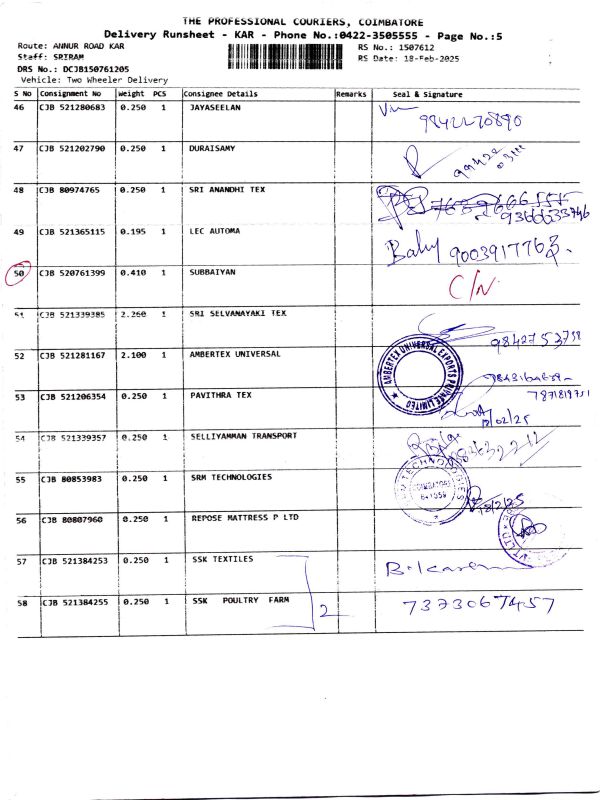 THE PROFESSIONAL COURIERS, COIMBATORE
Delivery Runsheet - KAR - Phone No.:0422-3505555 - Page No.:5
Route: ANNUR ROAD KAR
RS No.: 1507612
Staff: SRIRAM
RS Date: 18-Feb-2025
DRS No.: DCJB150761205
Vehicle: Two Wheeler Delivery
S No Consignment No Weight PCS Consignee Details Remarks Seal & Signature
46 CJB 521280683 0.250 1 JAYASEELAN
47 CJB 521202790 0.250 1 DURAISAMY
48 CJB 80974765 0.250 1 SRI ANANDHI TEX 9366633746
49 CJB 521365115 0.195 1 LEC AUTOMA Baby 9003917763.
50 CJB 520761399 0.410 1 SUBBAIYAN C/N
51 CJB 521339385 2.260 1 SRI SELVANAYAKI TEX 9842753738
52 CJB 521281167 2.100 1 AMBERTEX UNIVERSAL AMBERTEX UNIVERSAL EXPORTS PRIVATE LIMITED
53 CJB 521206354 0.250 1 PAVITHRA TEX 7871819751
18/02/25
54 CJB 521339357 0.250 1 SELLIYAMMAN TRANSPORT
55 CJB 80853983 0.250 1 SRM TECHNOLOGIES 18/2/25
56 CJB 80807960 0.250 1 REPOSE MATTRESS P LTD
57 CJB 521384253 0.250 1 SSK TEXTILES
58 CJB 521384255 0.250 1 SSK POULTRY FARM 2 7373067457